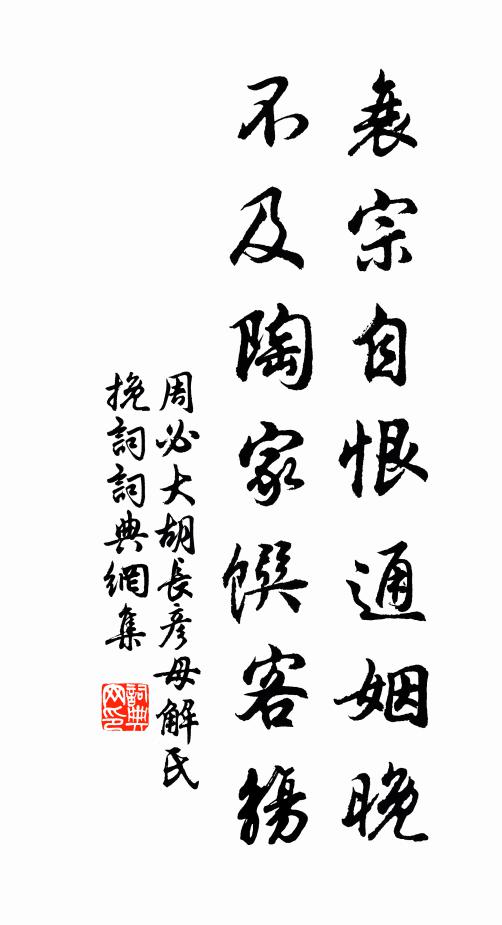 衰宗自恨通姻晚
不及陶家饌客觴
周必大胡長彥母解氏
挽詞詞典網集
詞典
网印